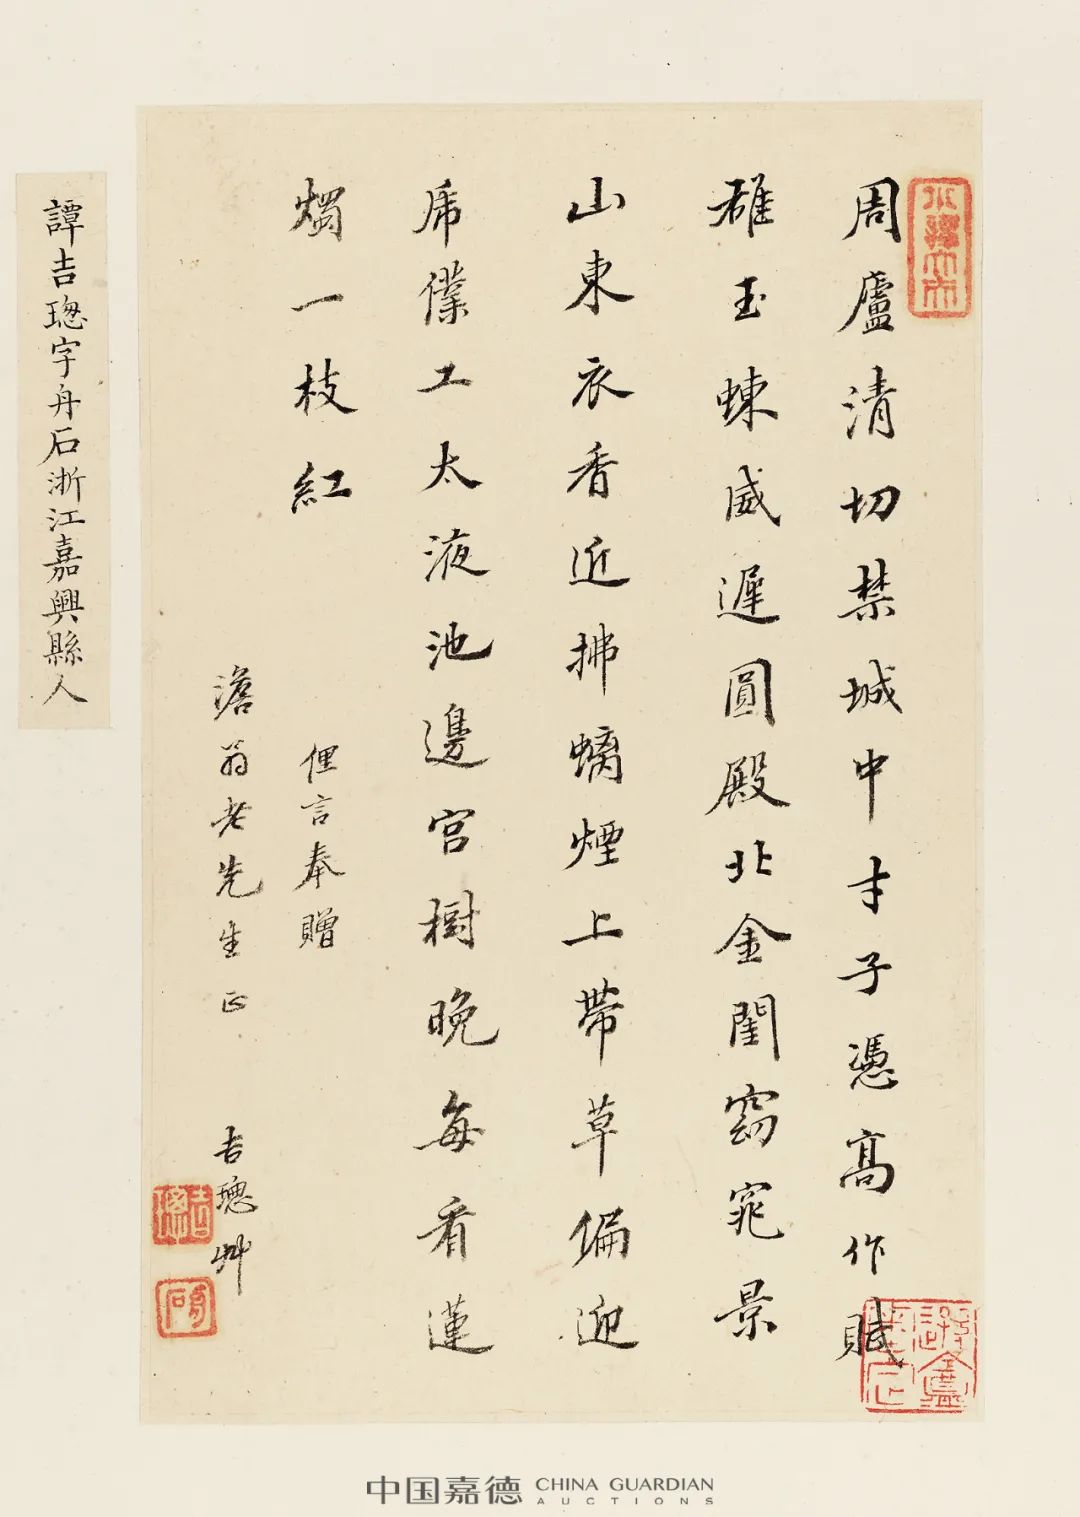 周廬清切禁城中才子憑高作賦
雄玉蝀威遲圓殿北金閨窈窕景
山東衣香近拂螭煙上帶草偏迎
乕僕工太液池邊宮樹晚每看蓮
燭一枝紅
俚言奉贈
澹翁老先生正 吉璁艸
吉璁
譚吉璁字舟石浙江嘉興縣人
中国嘉德 CHINA GUARDIAN
AUCTIONS